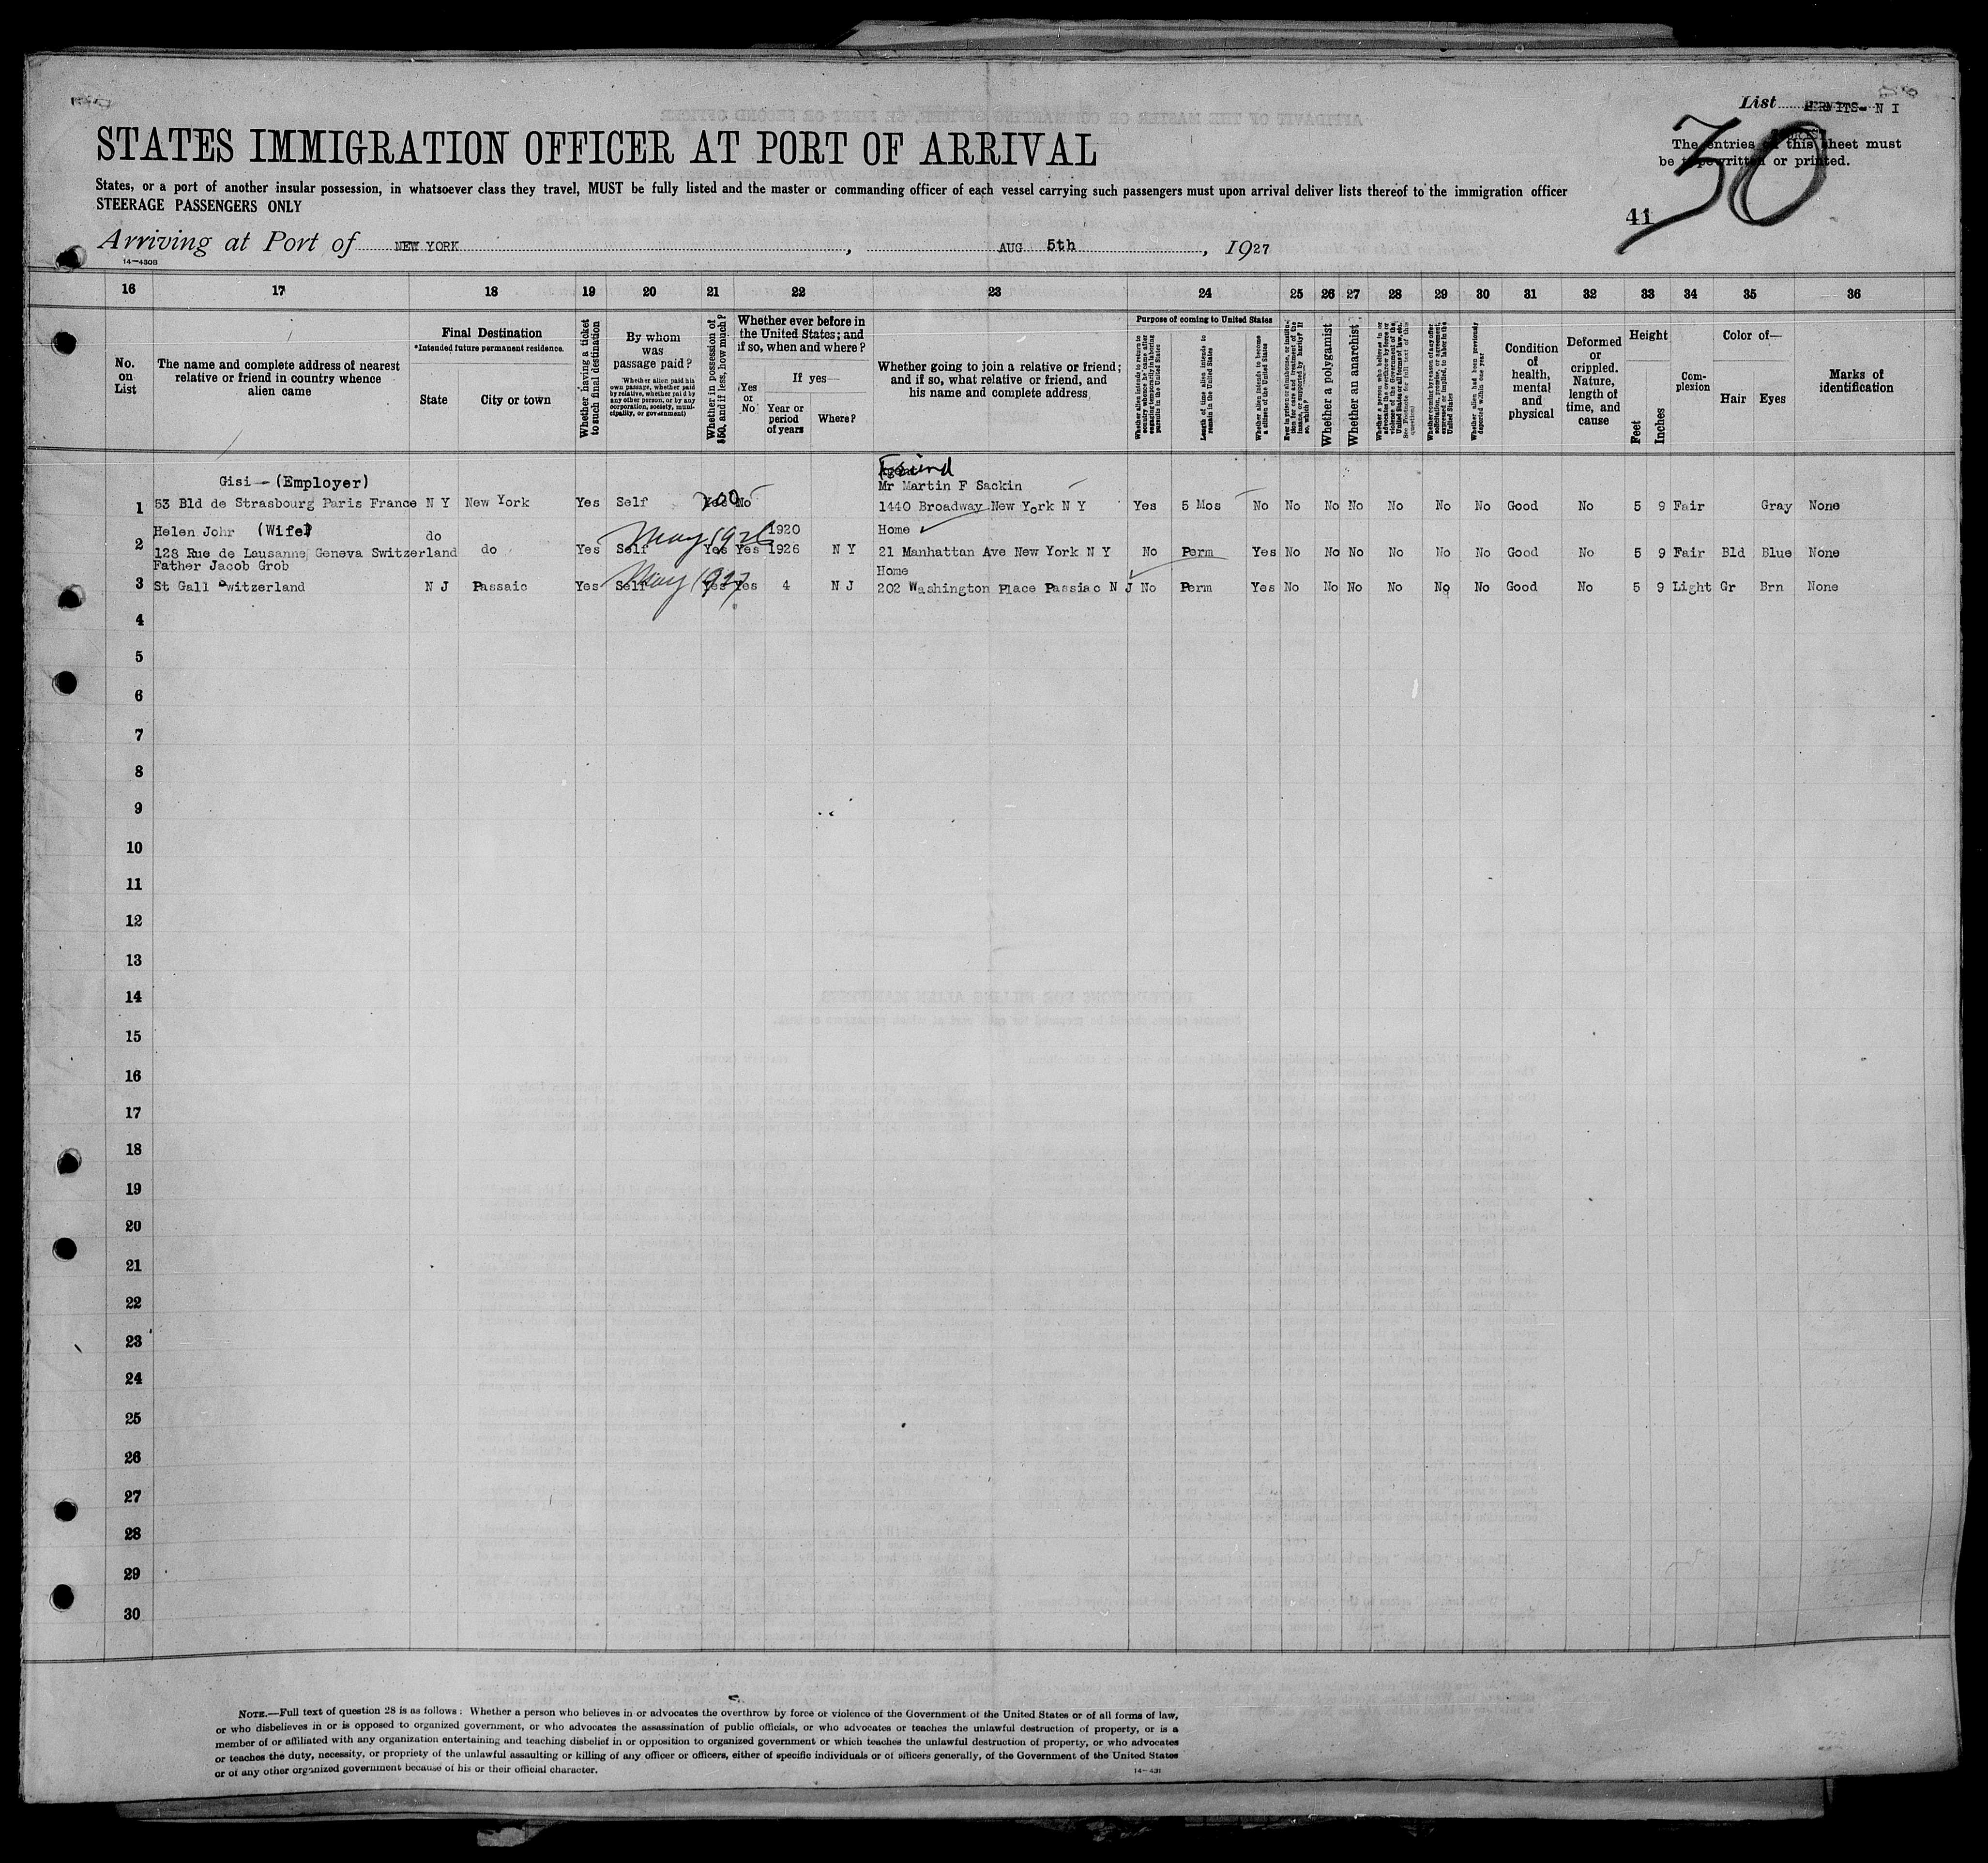 List PERMITS- N I
The entries on this sheet must
be typewritten or printed.
30
41
STATES IMMIGRATION OFFICER AT PORT OF ARRIVAL
States, or a port of another insular possession, in whatsoever class they travel, MUST be fully listed and the master or commanding officer of each vessel carrying such passengers must upon arrival deliver lists thereof to the immigration officer
STEERAGE PASSENGERS ONLY
Arriving at Port of NEW YORK, AUG 5th, 1927
14-430B
16 17 18 19 20 21 22 23 24 25 26 27 28 29 30 31 32 33 34 35 36
No. on List
The name and complete address of nearest relative or friend in country whence alien came
Final Destination
*Intended future permanent residence.
State
City or town
Whether having a ticket to such final destination
By whom was passage paid?
Whether alien paid his own passage, whether paid by relative, whether paid by any other person, or by any corporation, society, municipality, or government)
Whether in possession of $50, and if less, how much?
Whether ever before in the United States; and if so, when and where?
Yes or No
If yes—
Year or period of years
Where?
Whether going to join a relative or friend; and if so, what relative or friend, and his name and complete address
Purpose of coming to United States
Whether alien intends to return to country whence he came after engaging temporarily in laboring pursuits in the United States
Length of time alien intends to remain in the United States
Whether alien intends to become a citizen of the United States
Whether a polygamist
Whether an anarchist
Whether alien had been previously deported within one year
Condition of health, mental and physical
Deformed or crippled. Nature, length of time, and cause
Height
Feet
Inches
Complexion
Color of—
Hair
Eyes
Marks of identification
Friend
Gisi - (Employer)
Mr Martin F Sackin
1 53 Bld de Strasbourg Paris France N Y New York Yes Self Yes 200 No 1440 Broadway New York N Y Yes 5 Mos No No No No No No No Good No 5 9 Fair Gray None
Helen Johr (Wife) do May 1926 1920 Home
2 128 Rue de Lausanne Geneva Switzerland do Yes Self Yes Yes 1926 N Y 21 Manhattan Ave New York N Y No Perm Yes No No No No No No Good No 5 9 Fair Bld Blue None
Father Jacob Grob May 1927 Home
3 St Gall Switzerland N J Passaic Yes Self Yes Yes 4 N J 202 Washington Place Passiac N J No Perm Yes No No No No No No Good No 5 9 Light Gr Brn None
4
5
6
7
8
9
10
11
12
13
14
15
16
17
18
19
20
21
22
23
24
25
26
27
28
29
30
NOTE.—Full text of question 28 is as follows: Whether a person who believes in or advocates the overthrow by force or violence of the Government of the United States or of all forms of law,
or who disbelieves in or is opposed to organized government, or who advocates the assassination of public officials, or who advocates or teaches the unlawful destruction of property, or is a
member of or affiliated with any organization entertaining and teaching disbelief in or opposition to organized government or which teaches the unlawful destruction of property, or who advocates
or teaches the duty, necessity, or propriety of the unlawful assaulting or killing of any officer or officers, either of specific individuals or of officers generally, of the Government of the United States
or of any other organized government because of his or their official character.
14-431